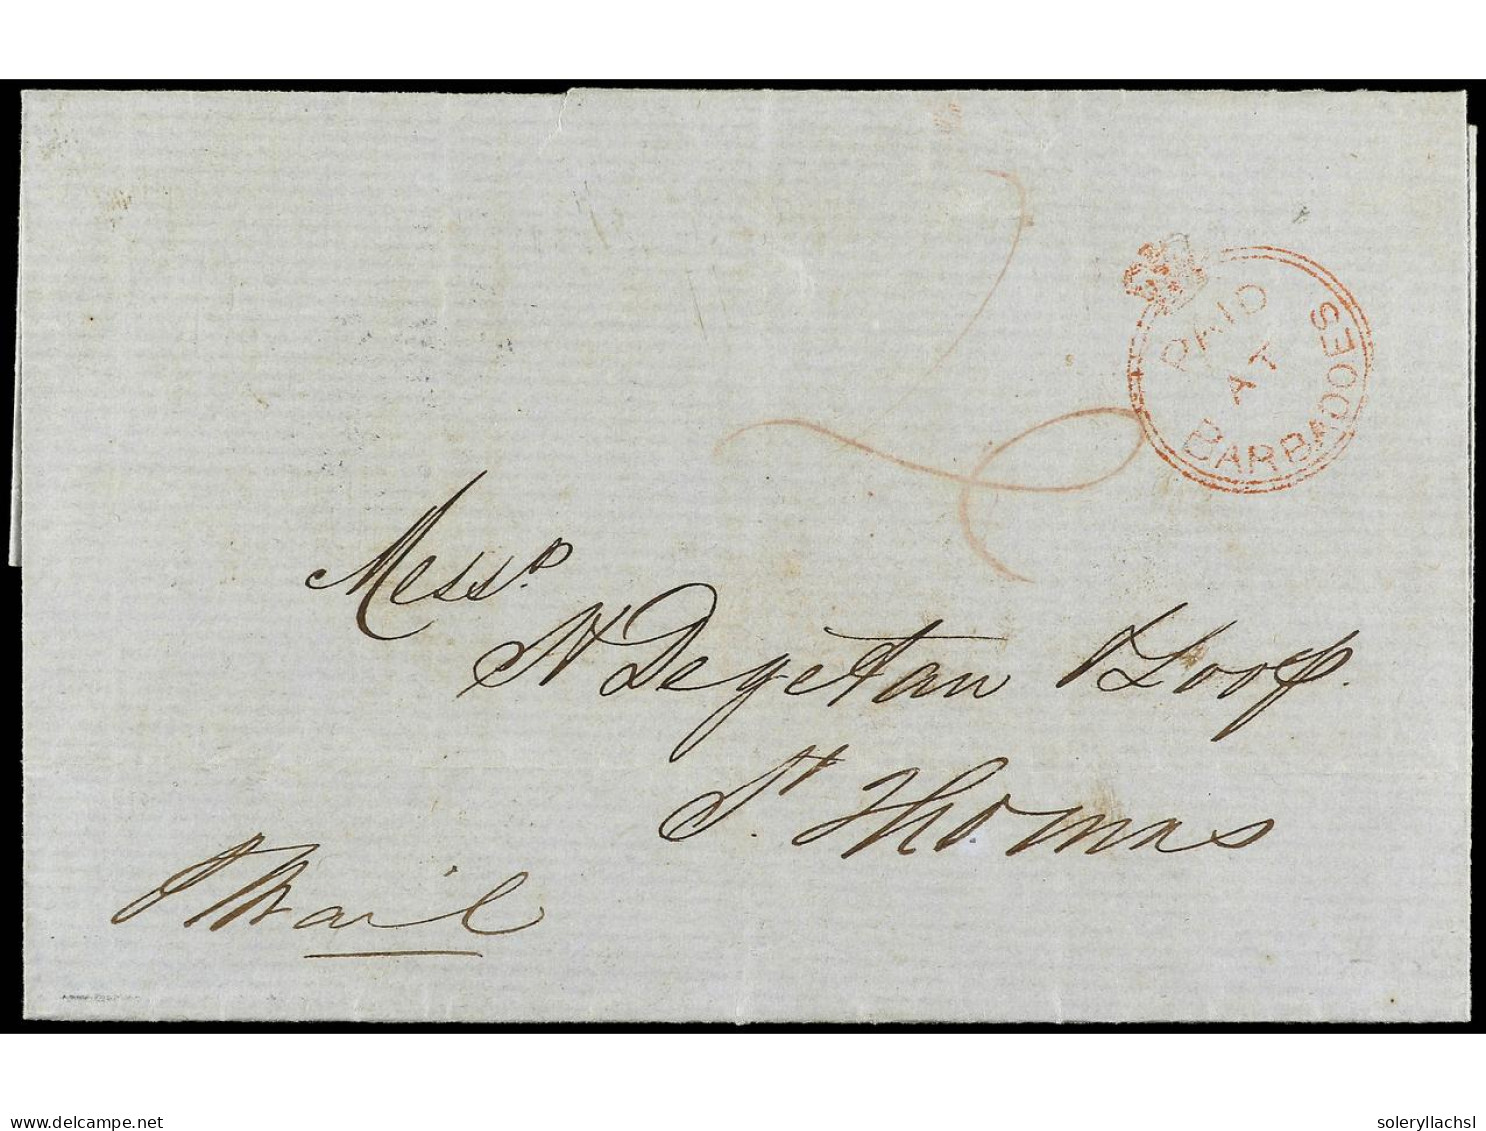 PAID
AT
BARBADOES
Messrs
N Degetau & Loof.
St. Thomas
p Mail
delcampe.net
soleryllachsl